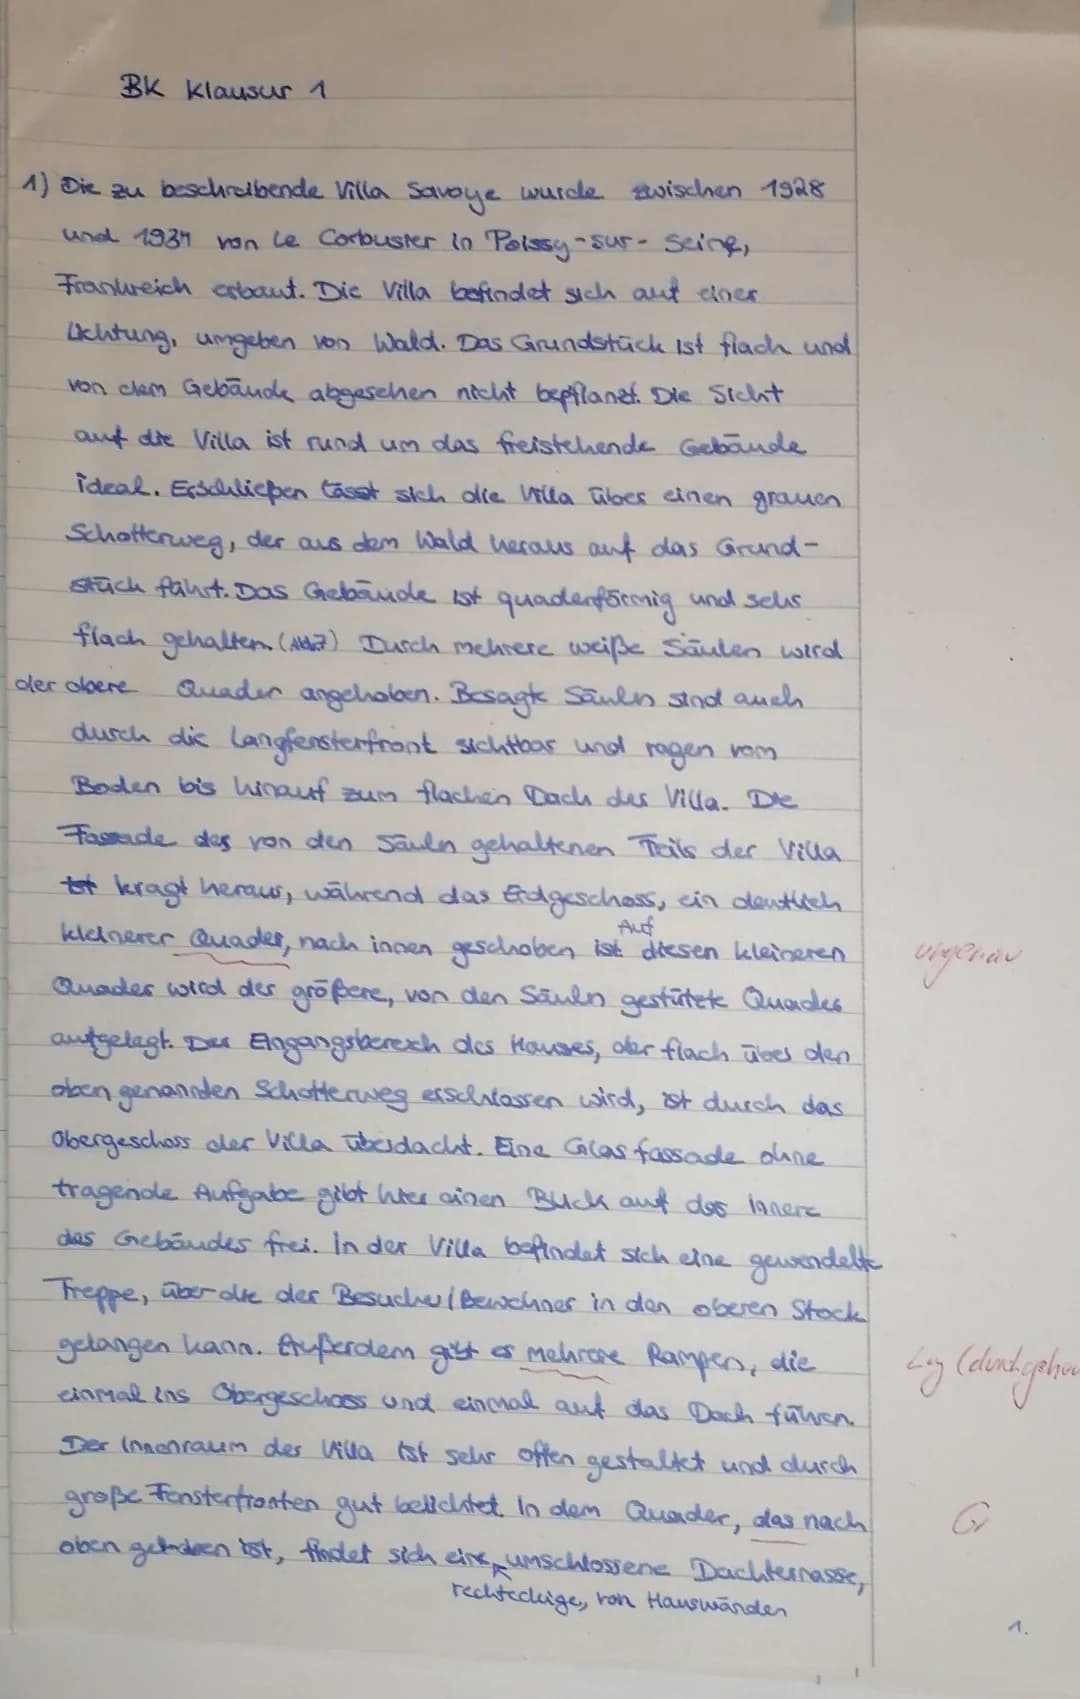 BK Klausur 1
1) Die zu beschreibende Villa Savoye wurde zwischen 1928
und 1931 von Le Corbusier in Poissy-sur-Seine,
Frankreich erbaut. Die Villa befindet sich auf einer
Lichtung, umgeben von Wald. Das Grundstück ist flach und
von dem Gebäude abgesehen nicht bepflanzt. Die Sicht
auf die Villa ist rund um das freistehende Gebäude
ideal. Erschließen lässt sich die Villa über einen grauen
Schotterweg, der aus dem Wald heraus auf das Grund-
stück führt. Das Gebäude ist quaderförmig und sehr
flach gehalten. (Abb.7) Durch mehrere weiße Säulen wird
der obere Quader angehoben. Besagte Säulen sind auch
durch die Langfensterfront sichtbar und ragen vom
Boden bis hinauf zum flachen Dach der Villa. Die
Fassade des von den Säulen gehaltenen Teils der Villa
kragt heraus, während das Erdgeschoss, ein deutlich
kleinerer Quader, nach innen geschoben ist Auf diesen kleineren ungenau
Quader wird der größere, von den Säulen gestützte Quader
aufgelegt. Der Eingangsbereich des Hauses, der flach über den
oben genannten Schotterweg erschlossen wird, ist durch das
Obergeschoss der Villa überdacht. Eine Glasfassade ohne
tragende Aufgabe gibt hier einen Blick auf das Innere
des Gebäudes frei. In der Villa befindet sich eine gewendelte
Treppe, über die der Besucher/Bewohner in den oberen Stock
gelangen kann. Außerdem gibt es mehrere Rampen, die
einmal ins Obergeschoss und einmal auf das Dach führen.
Der Innenraum der Villa ist sehr offen gestaltet und durch
große Fensterfronten gut belichtet. In dem Quader, das nach Gr
oben gehoben ist, findet sich eine umschlossene Dachterrasse,
rechteckige, von Hauswänden
1.